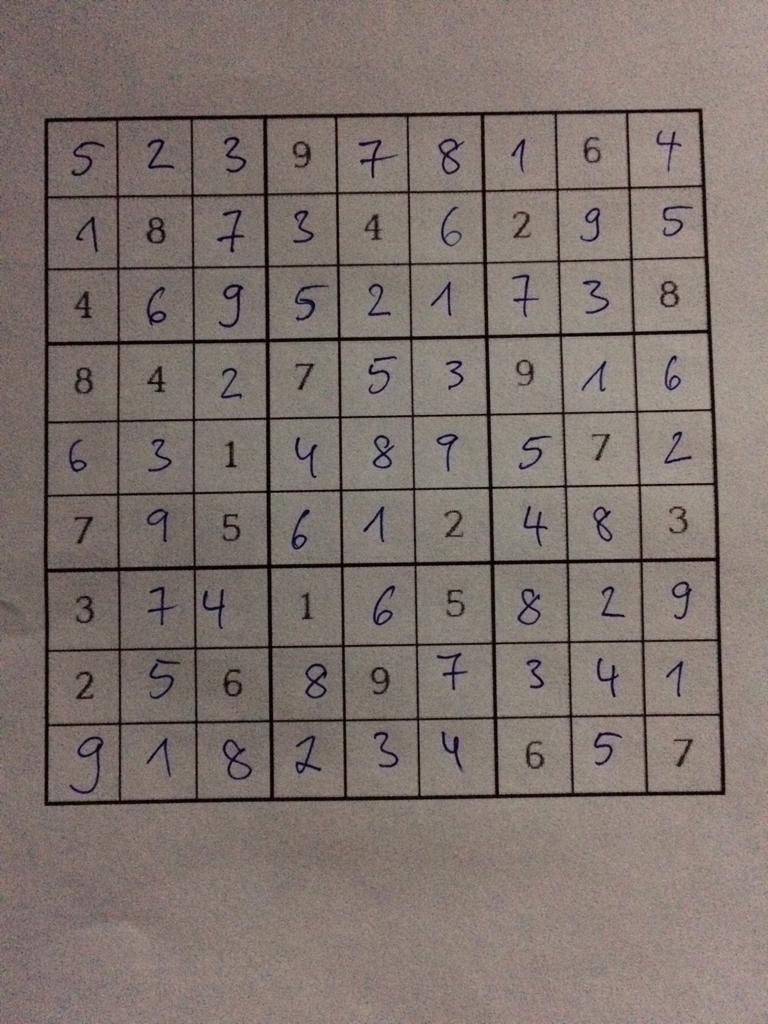 5 2 3 9 7 8 1 6 4
1 8 7 3 4 6 2 9 5
4 6 9 5 2 1 7 3 8
8 4 2 7 5 3 9 1 6
6 3 1 4 8 9 5 7 2
7 9 5 6 1 2 4 8 3
3 7 4 1 6 5 8 2 9
2 5 6 8 9 7 3 4 1
9 1 8 2 3 4 6 5 7